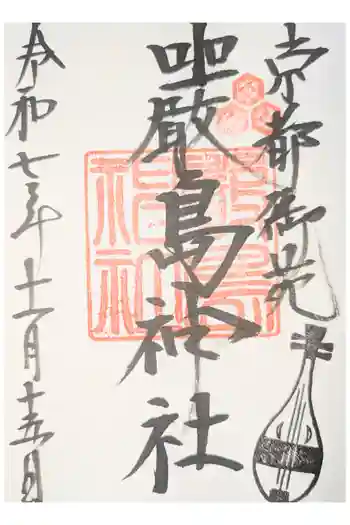 京都御苑
嚴島神社
令和七年十一月十五日